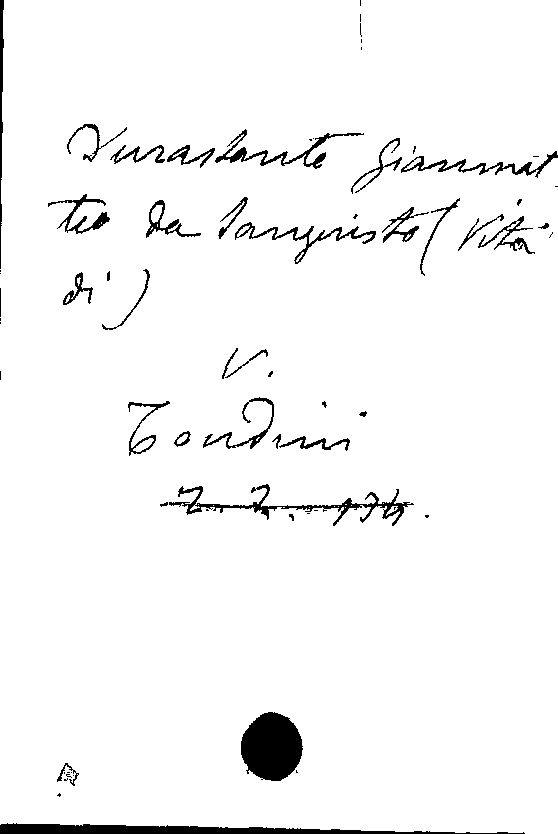 Durastante Gianmat
teo da Sangiusto (Vita
di)
V.
Tondini